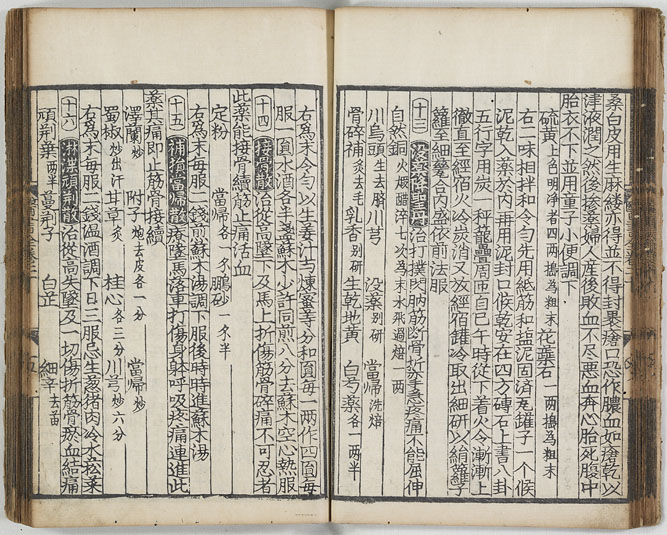 桑白皮用生麻縷亦得並不得封裹瘡口恐作膿血如瘡乾以
津液潤之然後摻藥婦人産後敗血不盡悪血奔心胎死腹中
胎衣不下並用童子小便調下
硫黄上色明淨者四兩擣為粗末 花蘂石一兩擣為粗末
右二味相拌和令匀先用紙筋和盐泥固济瓦罐子一个候
泥乾入藥於内再用泥封口候乾安在四方磚石上書八卦
五行字用炭一秤籠疊周匝自巳午時從下着火令漸漸上
徹直至經宿火冷炭消又放經宿罐冷取出細研以絹羅子
羅至細磁合内盛依前法服
十三 没藥降聖丹 治打撲閃肭筋断骨折挛急疼痛不能屈伸
自然銅火煅醋淬七次為末水飛過焙一两
川烏頭生去臍 川芎 没藥别研 當歸洗焙
骨碎補炙去毛 乳香别研 生乾地黄 白芍藥各一两半
右為末令匀以生姜汁与煉蜜等分和圓每一兩作四圓每
服一圓水酒各半盞蘇木少許同煎八分去蘇木空心熱服
十四 接骨散 治從高墜下及馬上折傷筋骨碎痛不可忍者
此薬能接骨續筋止痛活血
定粉 當歸各一錢 鵬砂一錢半
右為末每服二錢煎蘇木湯調下服後時時進蘇木湯
十五 補損當歸散 療墜馬落車打傷身躰呼吸疼痛連進此
薬其痛即止筋骨接續
澤蘭炒 附子炮去皮各一分 當帰炒
蜀椒炒出汗 甘草炙 桂心各三分 川芎炒六分
右為末每服二錢温酒調下日三服忌生葱猪肉冷水菘菜
十六 淋渫頑荆散 治從高失墜及一切傷折筋骨瘀血結痛
頑荆葉两半 蔓荆子 白芷 細辛去苗